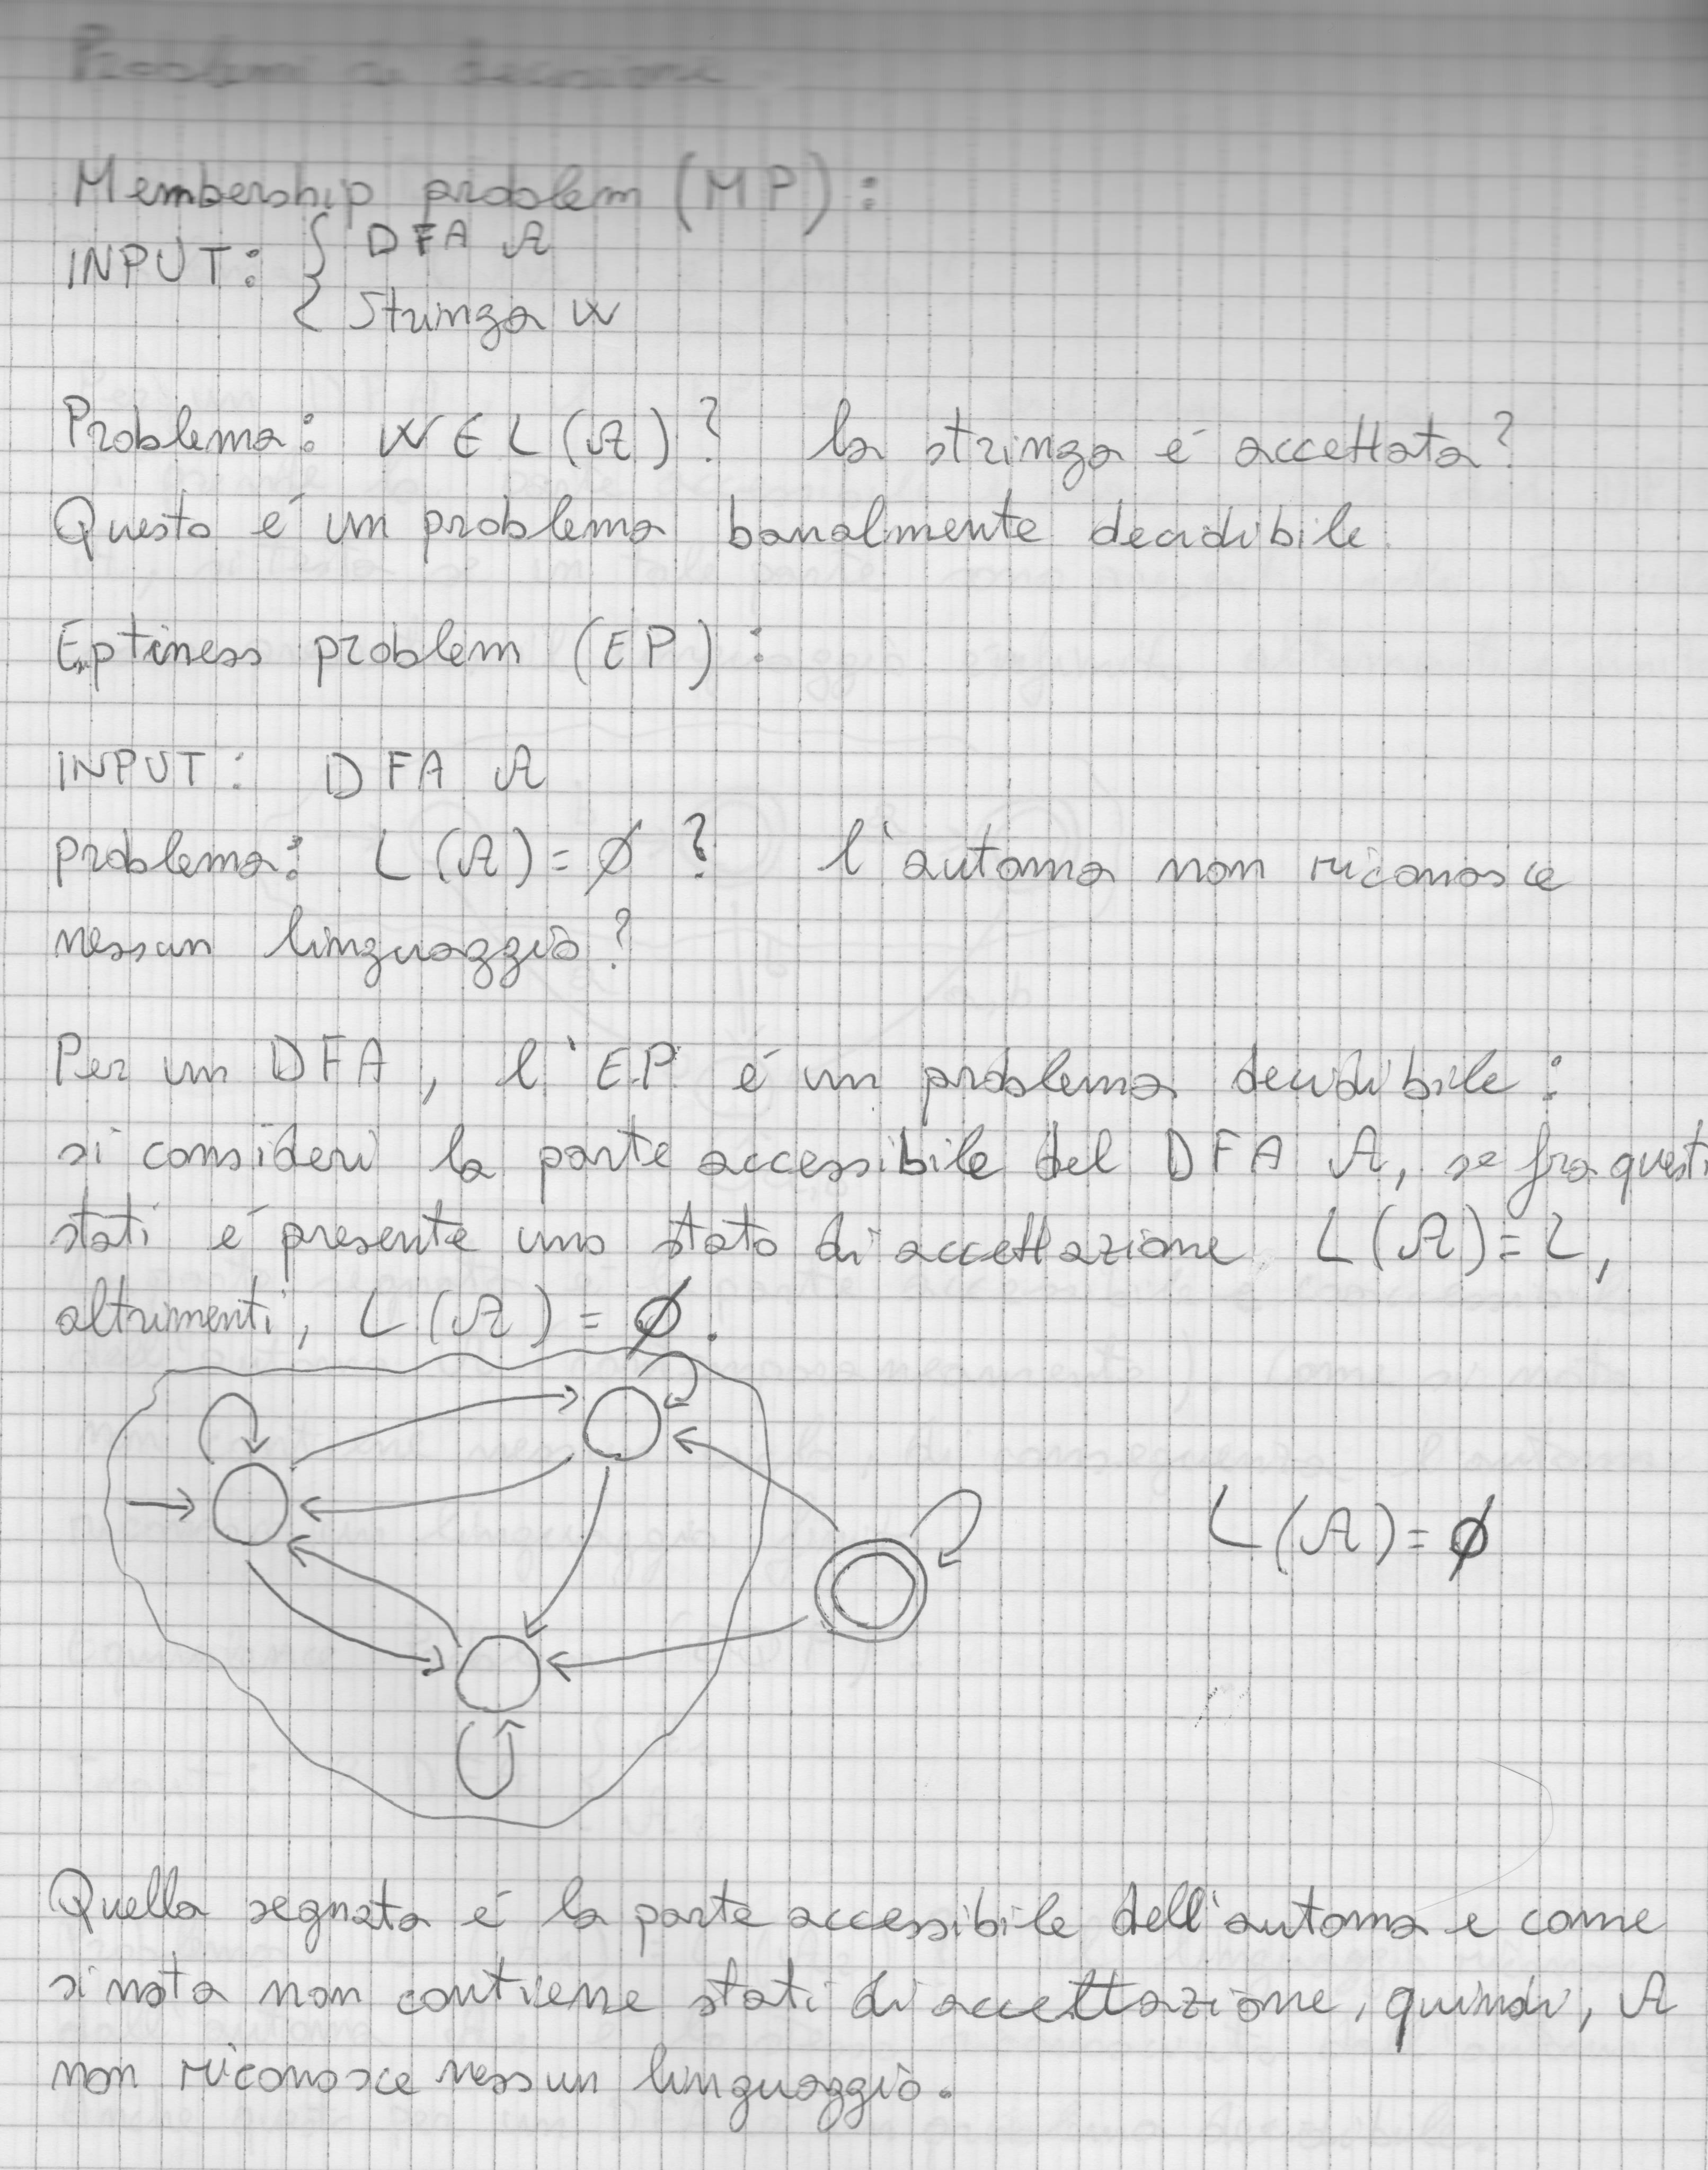 Problemi di decisione
Membership problem (MP):
INPUT: { DFA A
Stringa w
Problema: w ∈ L(A)? la stringa é accettata?
Questo é un problema banalmente decidibile.
Emptiness problem (EP):
INPUT: DFA A
problema: L(A) = ∅ ? l'automa non riconosce
nessun linguaggio?
Per un DFA, l'EP é un problema decidibile:
si consideri la parte accessibile del DFA A, se fra questi
stati é presente uno stato di accettazione L(A) = L,
altrimenti, L(A) = ∅.
L(A) = ∅
Quella segnata é la parte accessibile dell'automa e come
si nota non contiene stati di accettazione, quindi, A
non riconosce nessun linguaggio.